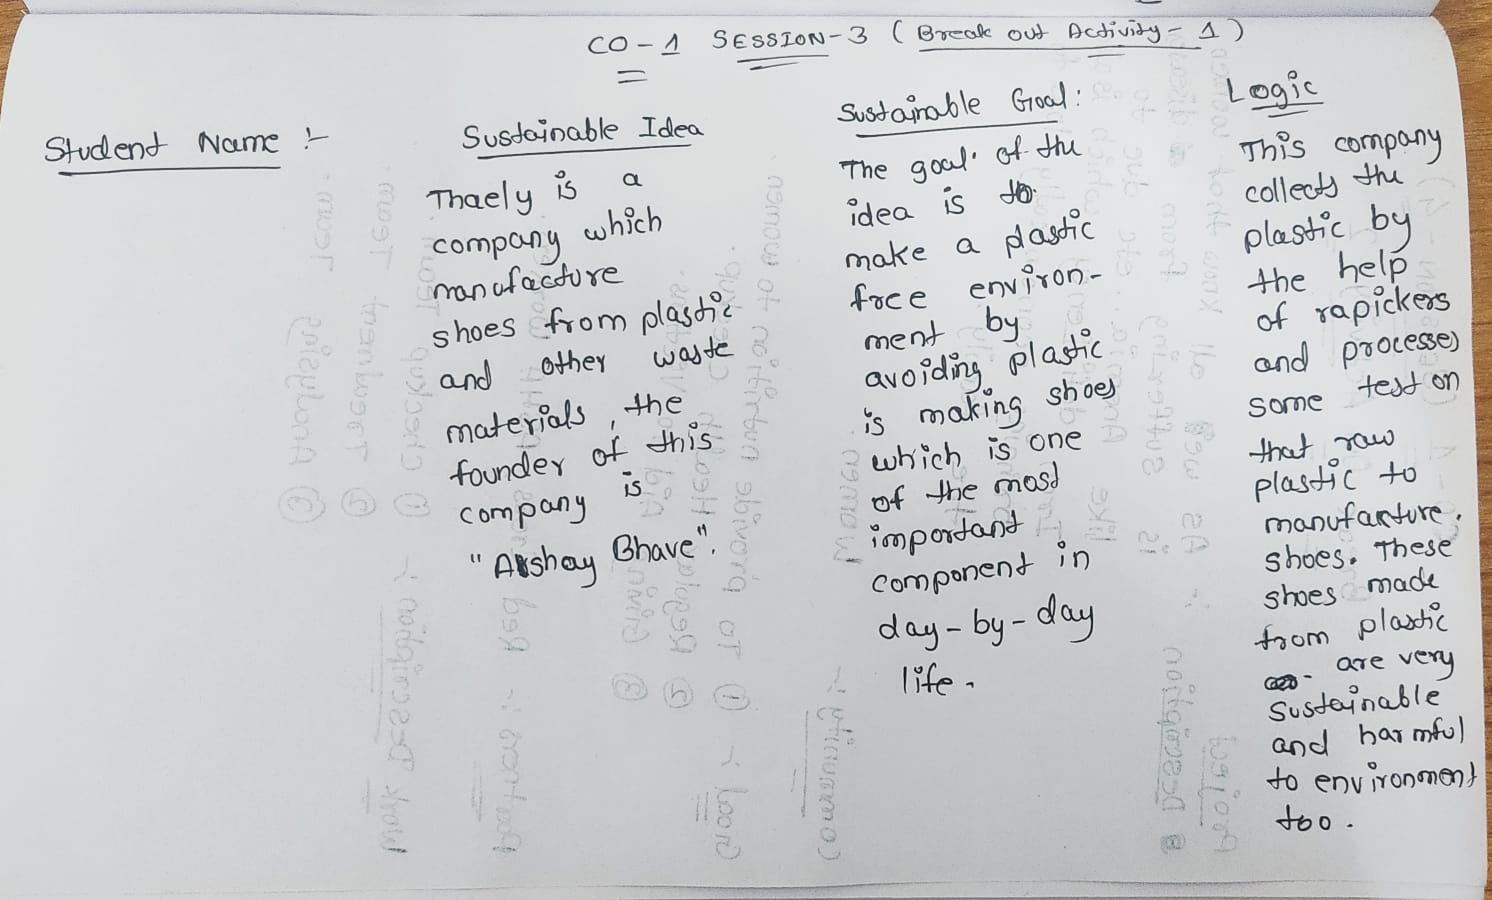 CO-1 SESSION-3 (Break out Activity-1)
Student Name :-
Sustainable Idea
Thaely is a
company which
manufacture
shoes from plastic
and other waste
materials, the
founder of this
company is
"Akshay Bhave".
Sustainable Goal:
The goal of the
idea is to
make a plastic
free environ-
ment by
avoiding plastic
is making shoes
which is one
of the most
important
component in
day-by-day
life.
Logic
This company
collects the
plastic by
the help
of rapickers
and processes
some test on
that raw
plastic to
manufacture.
shoes. These
shoes made
from plastic
are very
Sustainable
and harmful
to environment
too.